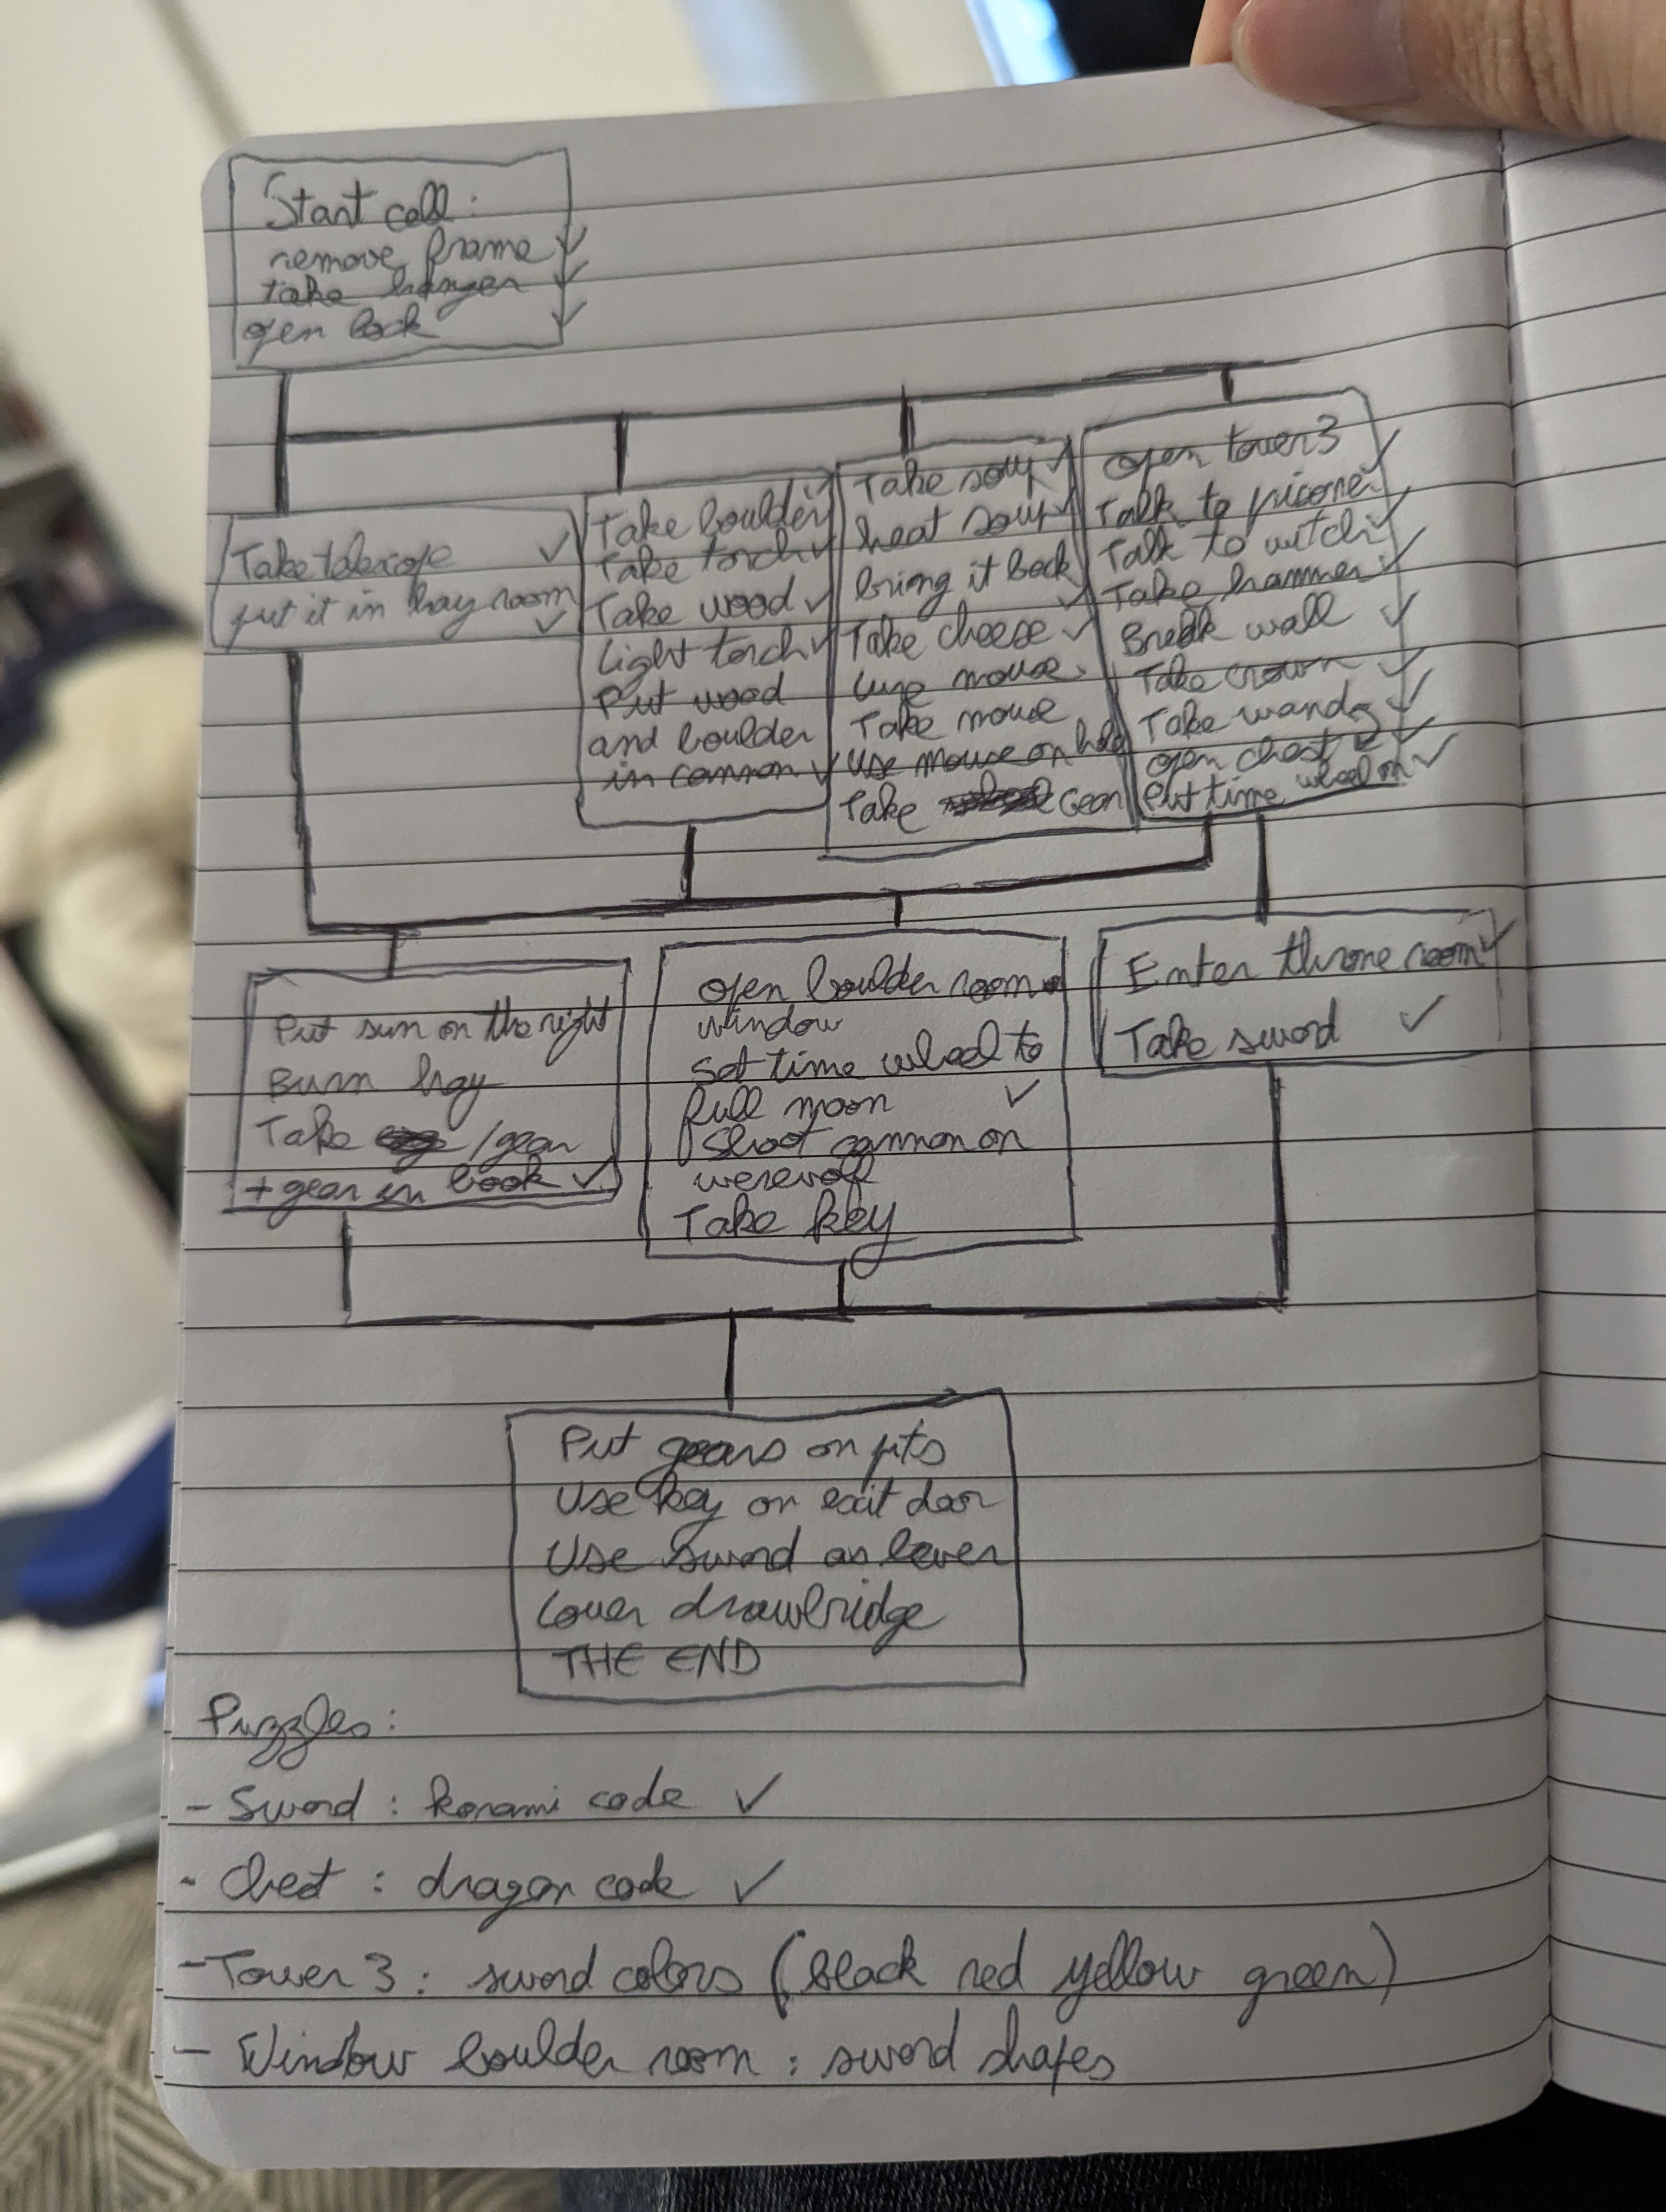 Start cell:
remove frame ✓
take hanger ✓
open lock ✓
Take telescope ✓
put it in hay room ✓
Take boulder ✓
Take torch ✓
Take wood ✓
Light torch ✓
Put wood
and boulder
in cannon ✓
Take soup ✓
heat soup ✓
bring it back ✓
Take cheese ✓
lure mouse
Take mouse
Use mouse on hole
Take gear
open tower 3 ✓
Talk to prisoner ✓
Talk to witch ✓
Take hammer ✓
Break wall ✓
Take crown ✓
Take wand ✓
open chest ✓
Put time wheel on ✓
Put sun on the right
Burn hay
Take /gear
+ gear in book ✓
open boulder room
window
Set time wheel to
full moon ✓
Shoot cannon on
werewolf
Take key
Enter throne room ✓
Take sword ✓
Put gears on pits
Use key on exit door
Use sword as lever
Lower drawbridge
THE END
Puzzles:
- Sword : konami code ✓
- Chest : dragon code ✓
- Tower 3 : sword colors (black red yellow green)
- Window boulder room : sword shapes